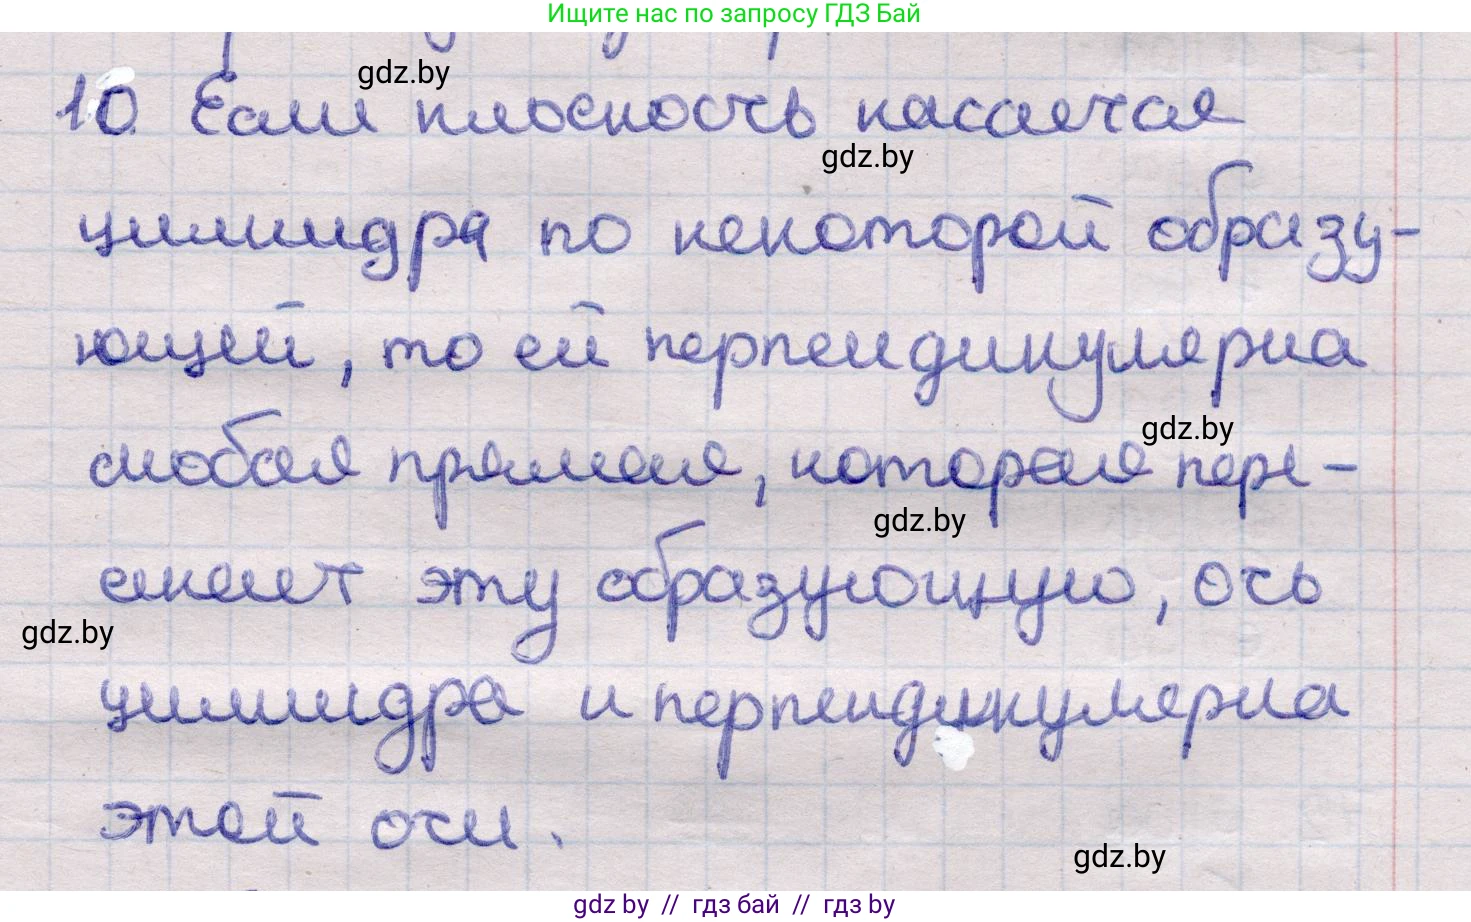 Ищите нас по запросу ГДЗ Бай
10. Если плоскость касается
gdz.by
gdz.by
цилиндра по некоторой образу-
ющей, то ей перпендикулярна
gdz.by
любая прямая, которая пере-
gdz.by
секает эту образующую, ось
gdz.by
цилиндра и перпендикулярна
этой оси.
gdz.by
gdz by // гдз бай // гдз by